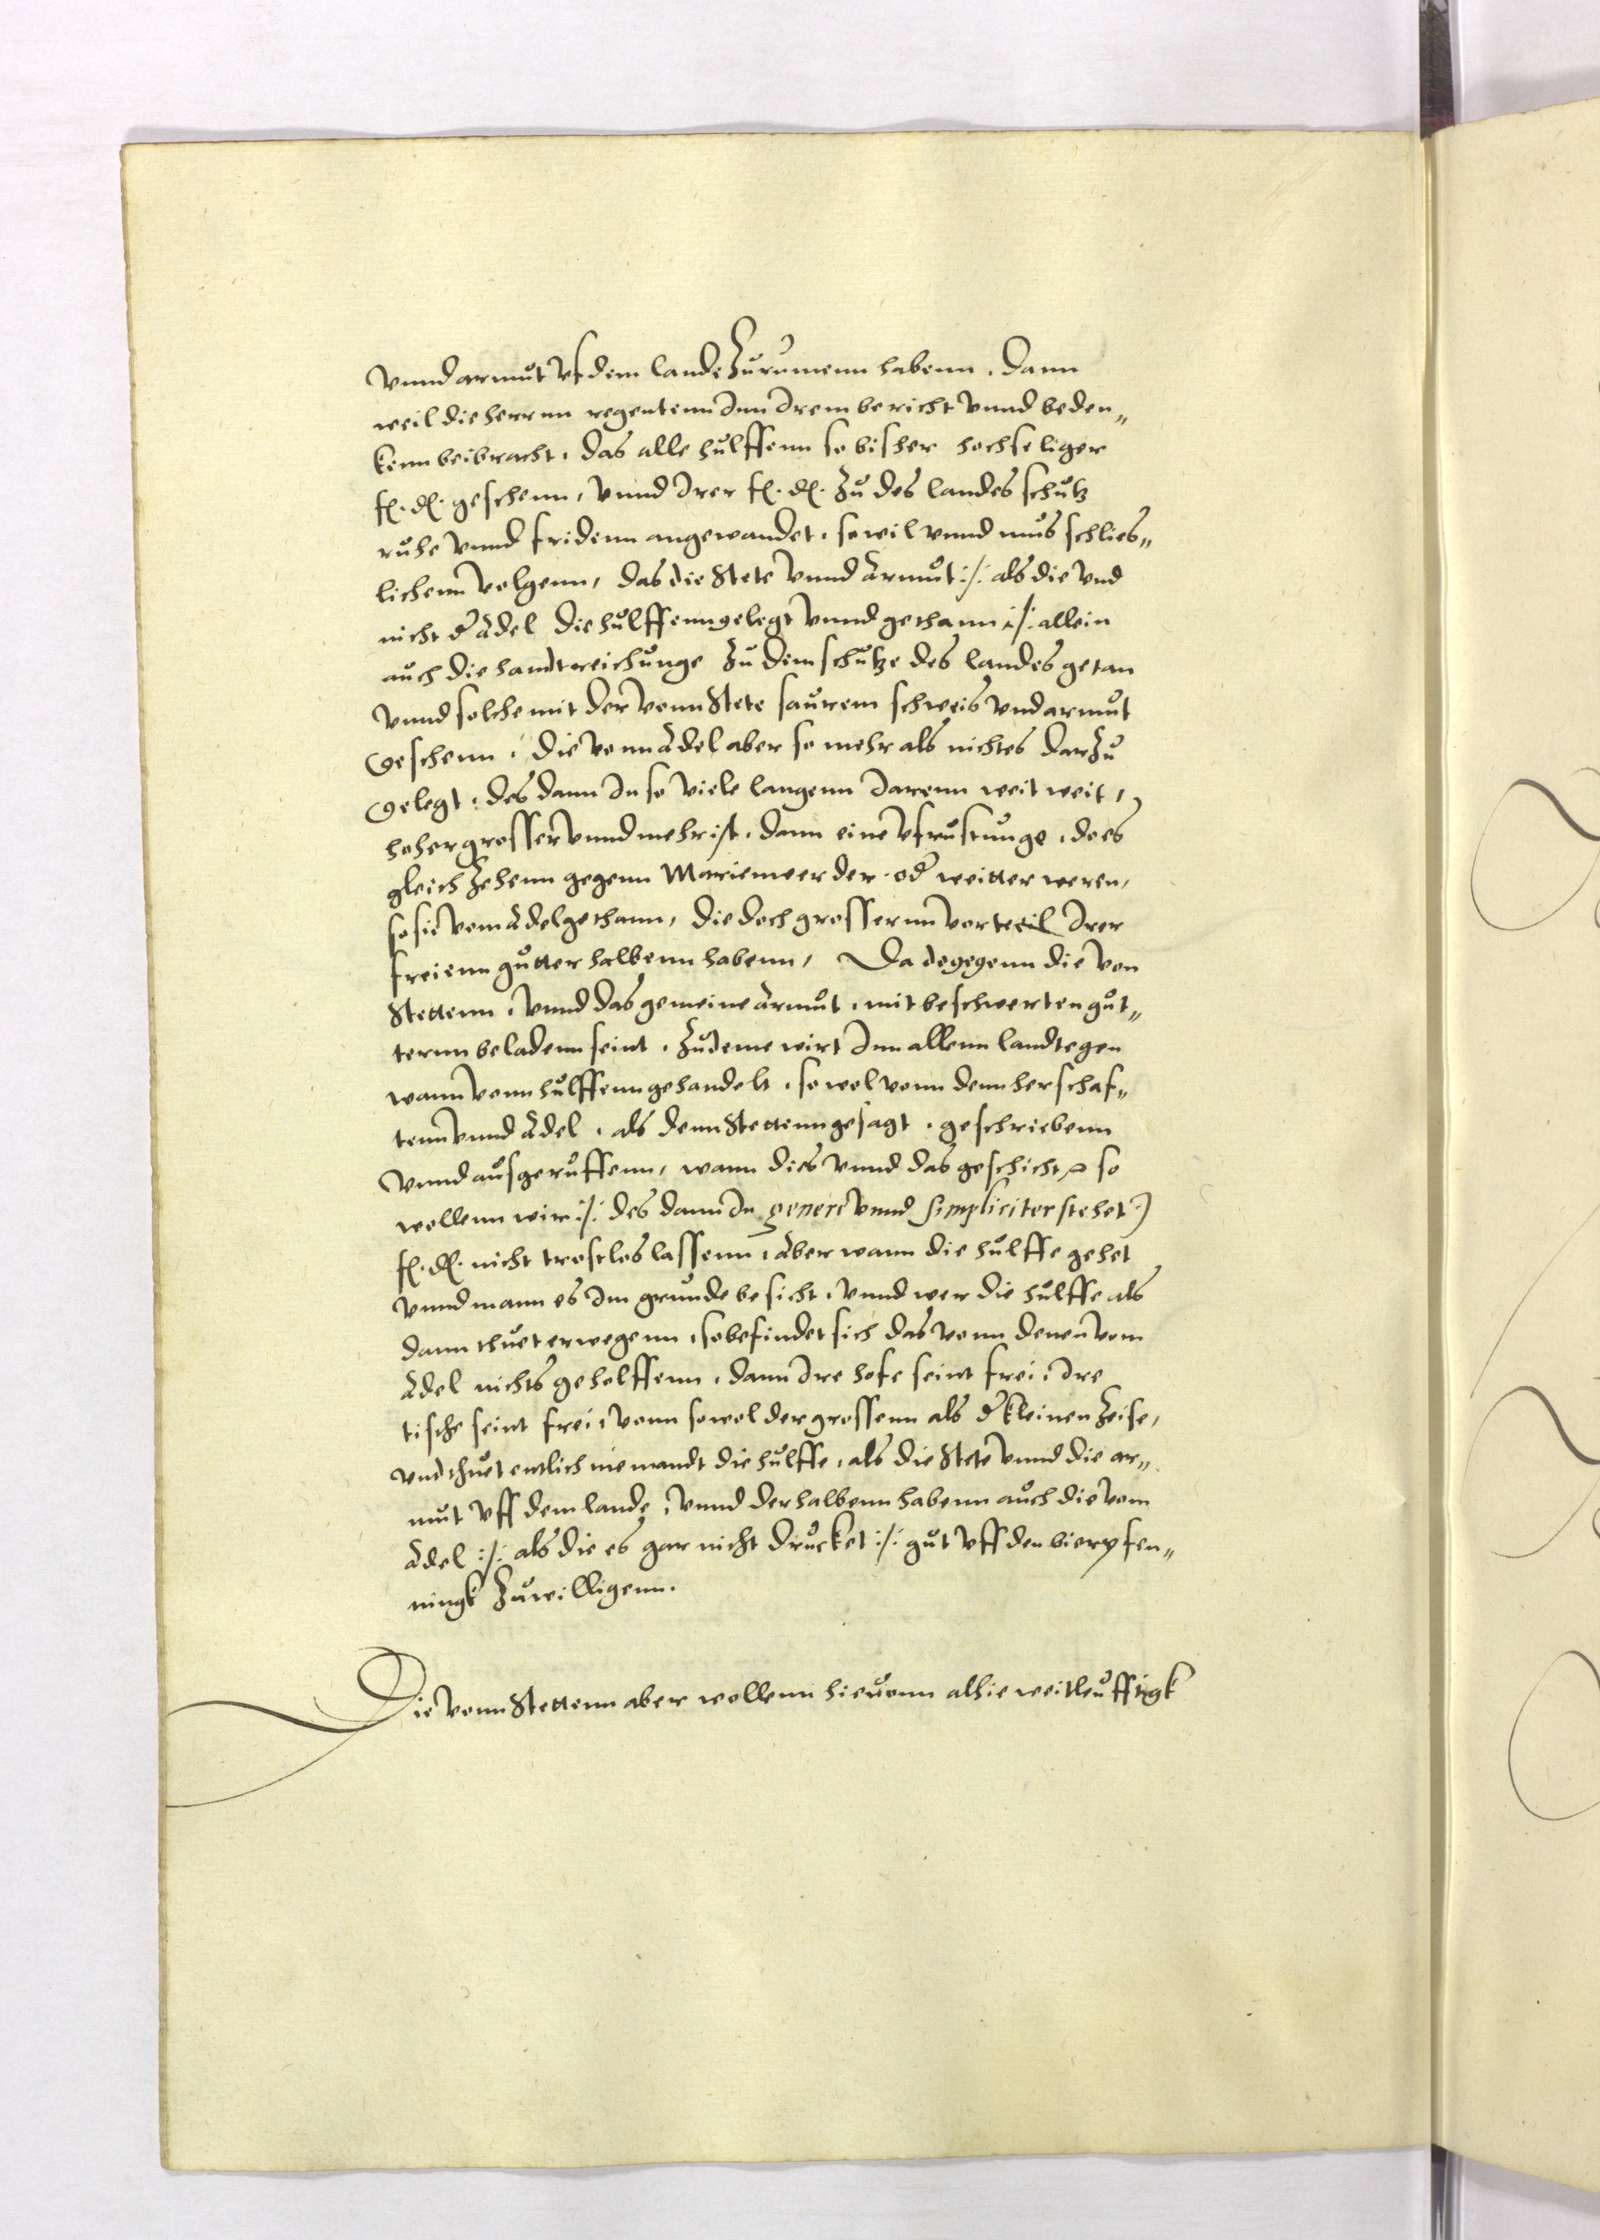 vnnd armut vf dem lande zurumenn habenn. Dann
weil die herrnn regentenn Inn Irem bericht vnnd beden„
kenn beibracht. das alle hulffenn so bisher hochseliger
f. d. geschenn, vnnd Irer f. d. zu des landes schutz
ruhe vnnd fridenn angewandet. so wil vnnd mus schlies„
lichenn volgenn, das die Stete vnnd Armut :/: als die vnd
nicht d' Adel die hulffenn gelegt vnnd gethann :/: allein
auch die handtreichunge zu dem schutze des landes getan
vnnd solche mit der vonn Stete saurem schweis vnd armut
Geschenn. die vonn Adel aber so mehr als nichtes darzu
Gelegt. des dann In so viele langenn Iarenn weit weit,
hoher grosser vnnd mehr ist. dann eine vfrustunge. do es
gleich zehenn gegenn Marienwerder. od' weitter weren,
so sie vom Adel gethann, die doch grossernn vorteeil Irer
freienn gutter halbenn habenn, Da degegenn die von
Stettenn. vnnd das gemeine Armut. mit beschwerten gut„
ternn beladenn seint. zudeme wirt Inn allenn landtegen
wann vonn hulffenn gehandelt. so wol vonn denn herschaf„
tenn vnnd Adel. als denn Stettenn gesagt. geschriebenn
vnnd ausgeruffenn, wann dies vnnd das geschicht so
wollenn wir :/: des dann In genere vnnd simpliciter stehet :)
f. d. nicht trostlos lassenn. Aber wann die hulffe gehet
vnnd mann es Im grunde besicht. vnnd wer die hulffe als
dann thuet erwegenn. so befindet sich das vonn denen vom
Adel nichts geholffenn. dann Ire hofe seint frei. Ire
tische seint frei. vonn sowol der grossenn als d' kleinen zeise,
vnd thuet entlich niemandt die hulffe. als die Stete vnnd die ar„
mut vff dem lande. vnnd derhalbenn habenn auch die vom
Adel :/: als die es gar nicht drucket :/: gut vff den bierpfen„
ningk zuwilligenn.
Die vonn Stettenn aber wollenn hieuonn alhie weitleuffigk